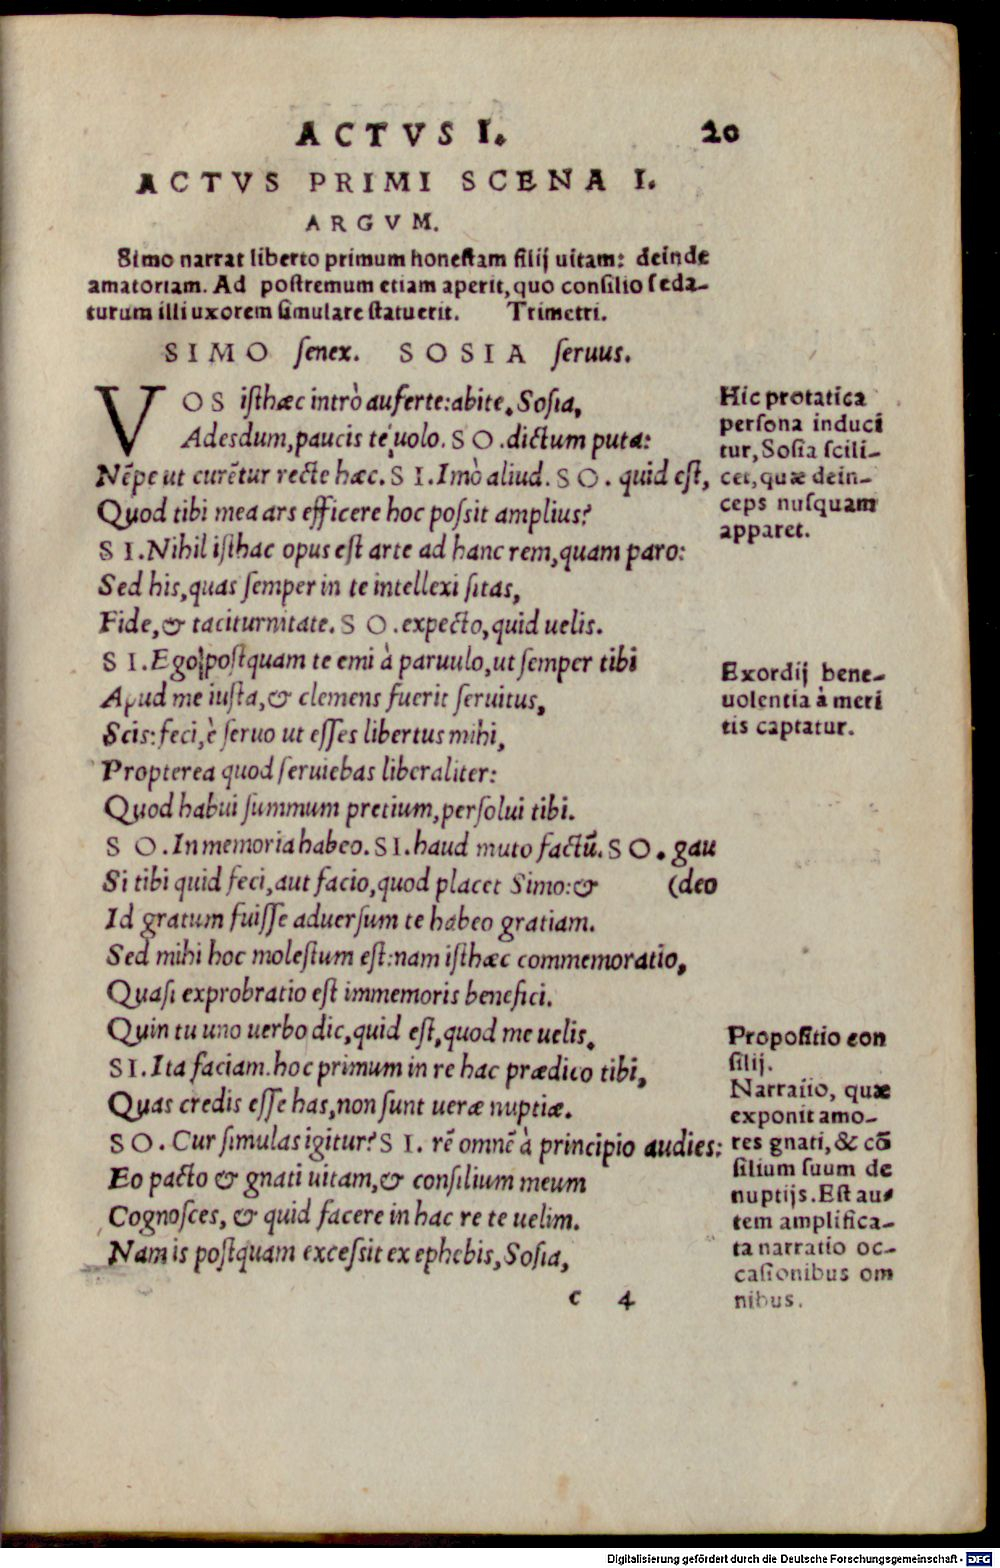 ACTVS I. 20
ACTVS PRIMI SCENA I.
ARGVM.
Simo narrat liberto primum honestam filij uitam: deinde
amatoriam. Ad postremum etiam aperit, quo consilio seda-
turum illi uxorem simulare statuerit. Trimetri.
SIMO senex. SOSIA seruus.
VOS isthæc intrò auferte: abite. Sosia,
Adesdum, paucis te uolo. SO. dictum puta:
Nẽpe ut curẽtur recte hæc. SI. Imò aliud. SO. quid est,
Quod tibi mea ars efficere hoc possit amplius?
SI. Nihil isthac opus est arte ad hanc rem, quam paro:
Sed his, quas semper in te intellexi sitas,
Fide, & taciturnitate. SO. expecto, quid uelis.
SI. Ego postquam te emi à paruulo, ut semper tibi
Apud me iusta, & clemens fuerit seruitus,
Scis: feci, è seruo ut esses libertus mihi,
Propterea quod seruiebas liberaliter:
Quod habui summum pretium, persolui tibi.
SO. In memoria habeo. SI. haud muto factũ. SO. gau
Si tibi quid feci, aut facio, quod placet Simo: & (deo
Id gratum fuisse aduersum te habeo gratiam.
Sed mihi hoc molestum est: nam isthæc commemoratio,
Quasi exprobratio est immemoris benefici.
Quin tu uno uerbo dic, quid est, quod me uelis.
SI. Ita faciam. hoc primum in re hac prædico tibi,
Quas credis esse has, non sunt ueræ nuptiæ.
SO. Cur simulas igitur? SI. rẽ omnẽ à principio audies:
Eo pacto & gnati uitam, & consilium meum
Cognosces, & quid facere in hac re te uelim.
Nam is postquam excessit ex ephebis, Sosia,
c 4
Hic protatica
persona induci
tur, Sosia scili-
cet, quæ dein-
ceps nusquam
apparet.
Exordij bene-
uolentia à meri
tis captatur.
Propositio con
silij.
Narratio, quæ
exponit amo-
res gnati, & cõ
silium suum de
nuptijs. Est au-
tem amplifica-
ta narratio oc-
casionibus om
nibus.
Digitalisierung gefördert durch die Deutsche Forschungsgemeinschaft - DFG